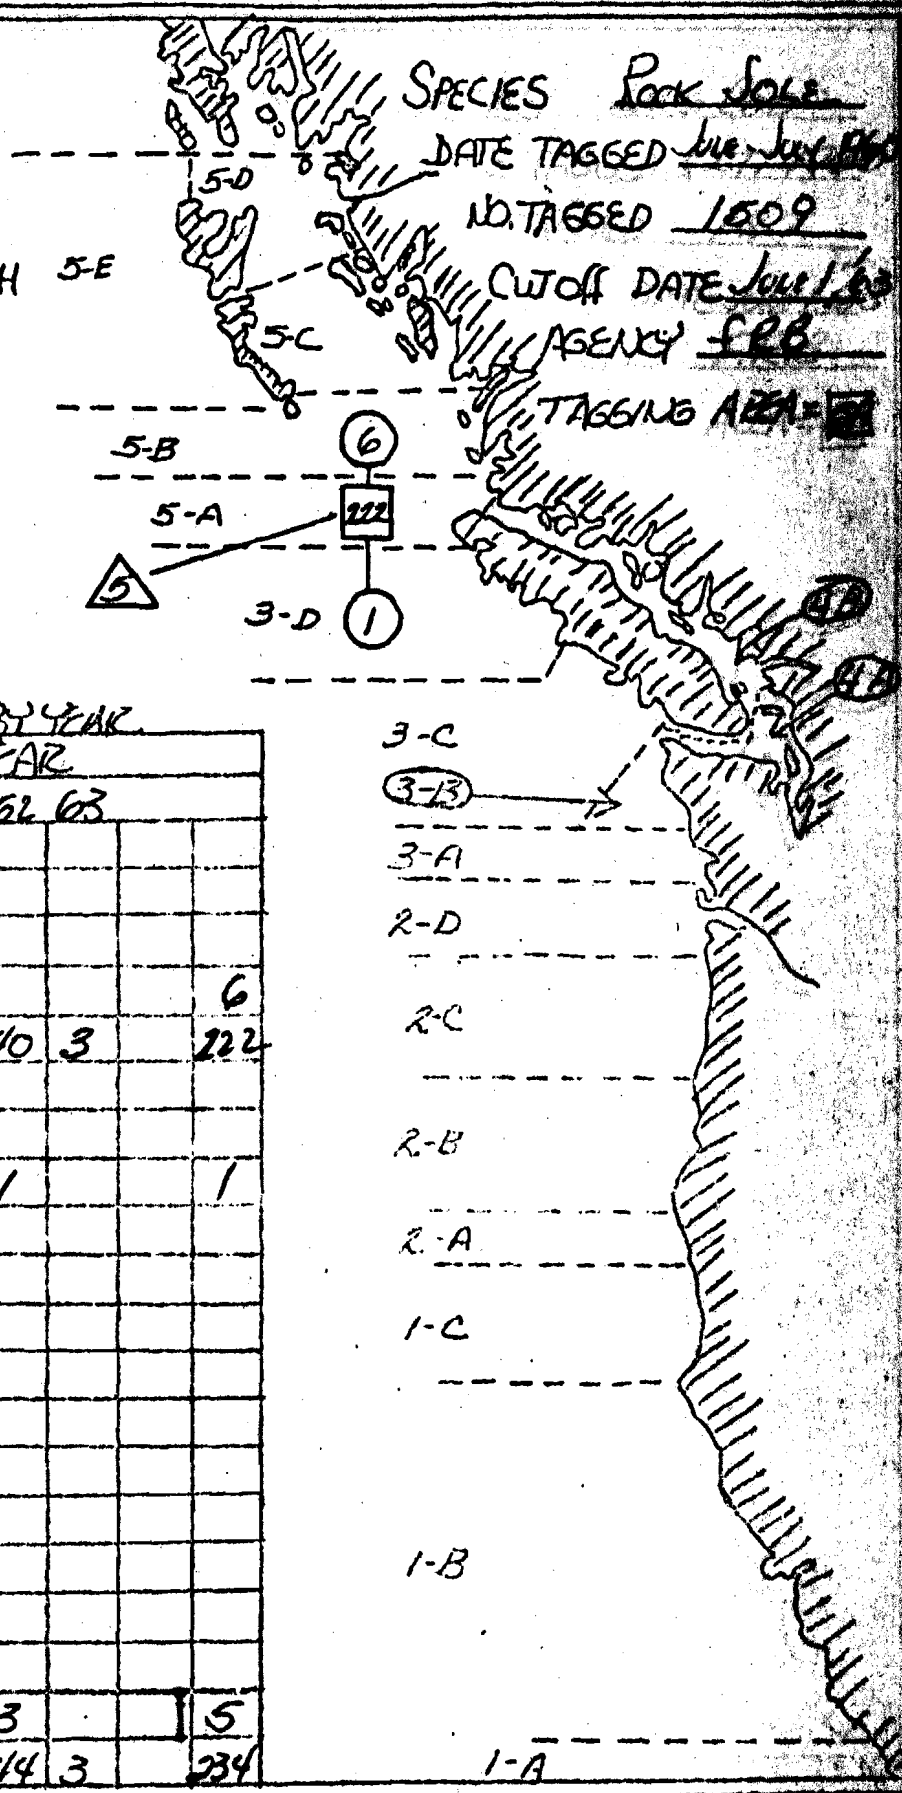 SPECIES ROCK SOLE
DATE TAGGED JUNE-JULY 1960
NO. TAGGED 1509
CUTOFF DATE JUNE 1, 63
AGENCY FRB
TAGGING AREA =
5-D
H 5-E
5-C
5-B
6
5-A
222
5
3-D
1
4B
4A
3-C
3-B
3-A
2-D
2-C
2-B
2-A
1-C
1-B
1-A
BY YEAR
EAR
62 63
6
40 3 222
1 1
3 5
44 3 234